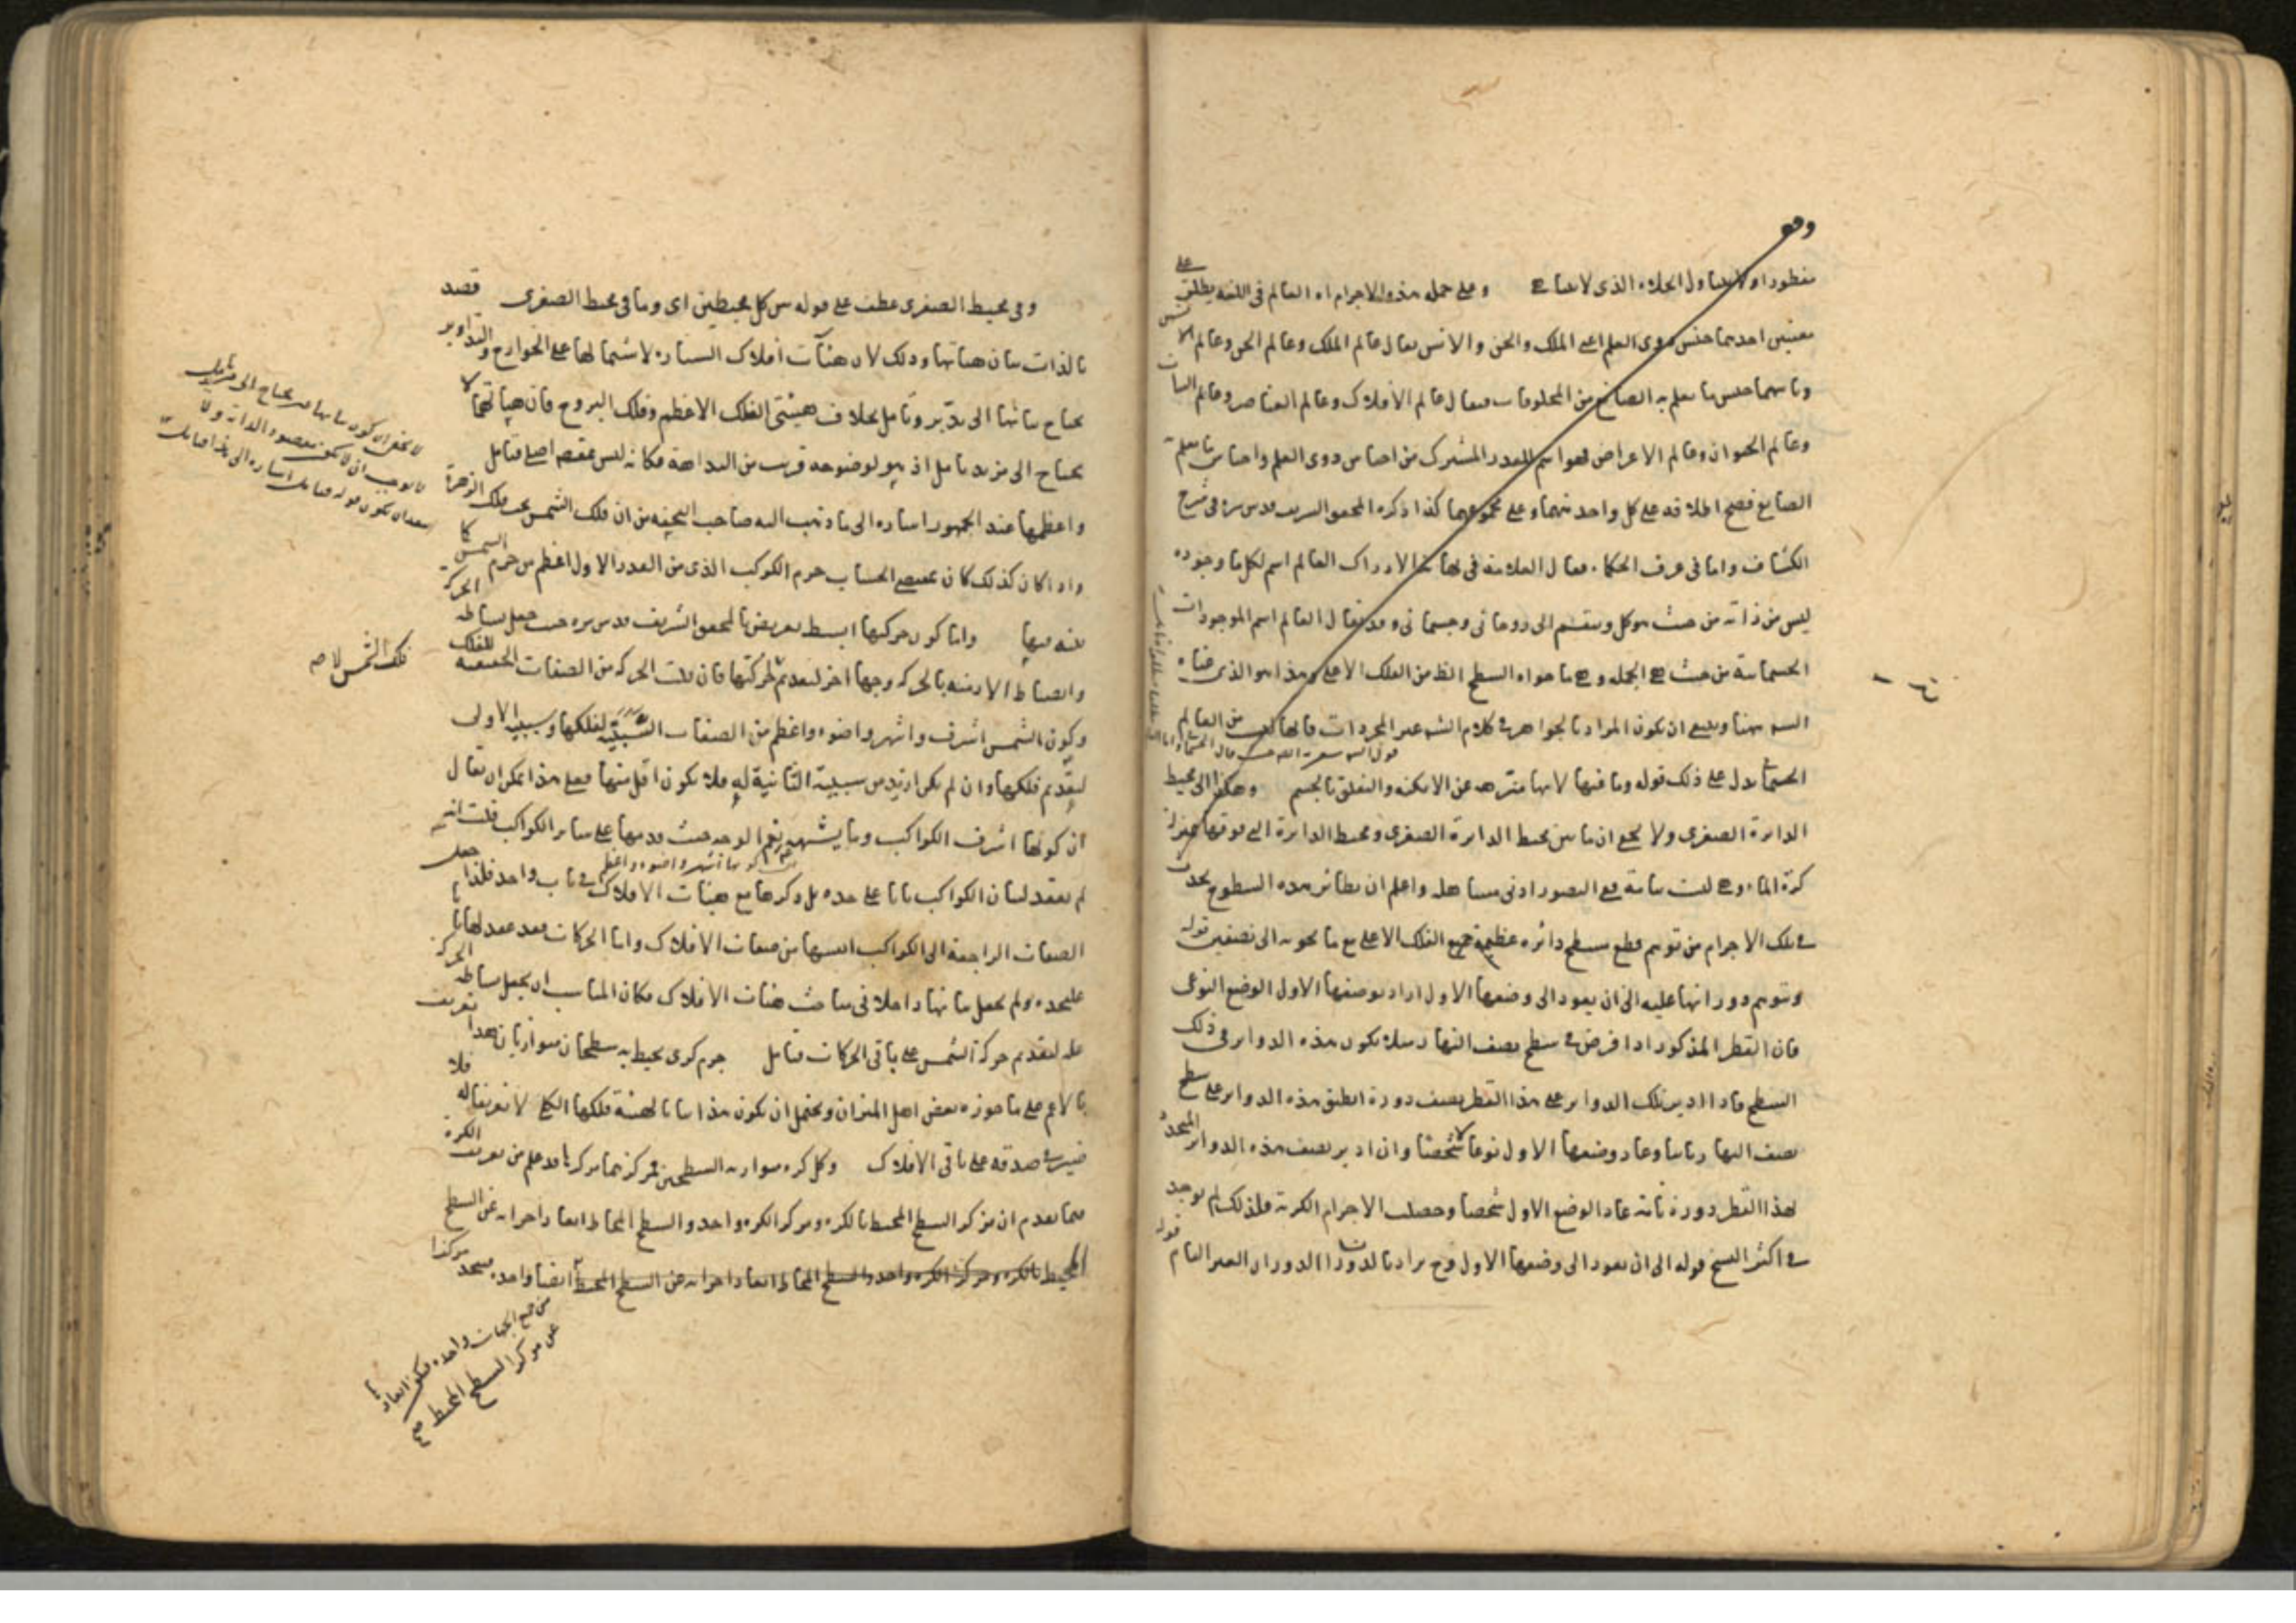 وهو
منظورا ولا يتناول الخلاء الذي لا يتناهى وعلى جملة هذه الاجرام اه العالم في اللغة يطلق على
معنيين احدهما جنس ذوي العلم اعني الملك والجن والانس يقال عالم الملك وعالم الجن وعالم الانس
وثانيهما جنس ما يعلم به الصانع من المخلوقات فيقال عالم الافلاك وعالم العناصر وعالم النبات
وعالم الحيوان وعالم الاعراض فهو اسم للقدر المشترك من اجناس ذوي العلم واجناس ما يعلم به
الصانع فصح اطلاقه على كل واحد منهما وعلى مجموعهما كذا ذكره المحقق الشريف قدس سره في شرح
الكشاف واما في عرف الحكماء فقال العلامة في نهاية الادراك العالم اسم لكل ما وجوده
ليس من ذاته من حيث هو كل وينقسم الى روحاني وجسماني وقد يقال العالم اسم الموجودات
الجسمانية من حيث هي الجملة وهي ما حواه السطح الظ من الفلك الاعلى وهذا هو الذي
هنا وينبغي ان يكون المراد بالجواهر في كلام غير المجردات فانها ليست من العالم
الجسماني يدل على ذلك قوله وما فيها لانها منزهة عن الامكنة والتعلق بالجسم وهكذا الى محيط
الدائرة الصغرى ولا يخفى ان ما بين محيط الدائرة الصغرى ومحيط الدائرة التي فوقها بمنزلة
كرة الماء وهي ليست تامة ففي التصوير ادنى مساهلة واعلم ان نظائر هذه السطوح يحدث
في تلك الاجرام من توهم قطع سطح دائرة عظيمة جميع الفلك الاعلى مع ما يحويه الى نصفين قوله
وتوهم دورانها عليه الى ان يعود الى وضعها الاول اراد بوضعها الاول الوضع النوعي
فان القطر المذكور اذا فرض في سطح نصف النهار مثلا يكون هذه الدوائر في ذلك
السطح فاذا ادير تلك الدوائر على هذا القطر نصف دورة انطبق هذه الدوائر على سطح
نصف النهار ثانيا وعاد وضعها الاول نوعا لا شخصا وان ادير نصف هذه الدوائر
لهذا القطر دورة تامة عاد الوضع الاول شخصا وحصلت الاجرام الكرية فلذلك لم يوجد
في اكثر النسخ قوله الى ان يعود الى وضعها الاول وح يراد بالدوران الدوران الغير التام قوله
وفي محيط الصغرى عطف على قوله بين كل محيطين اي وما في محيط الصغرى قصد
بالذات بيان هيئاتها وذلك لان هيئات افلاك السيارة لاشتمالها على الخوارج والتداوير
يحتاج بيانها الى تدبر وتأمل بخلاف هيئتي الفلك الاعظم وفلك البروج فان هيئاتهما لا
يحتاج الى مزيد تأمل اذ هو لوضوحه قريب من البداهة فكانه ليس بمقصد اصلي فتأمل
واعظمها عند الجمهور اشارة الى ما ذهب اليه صاحب التحفة من ان فلك الشمس تحت فلك الزهرة
واذا كان كذلك كان بمقتضى الحساب جرم الكوكب الذي من القدر الاول اعظم من جرم الشمس كما
بينه فيها واما كون حركتها ابسط تعريض بالمحقق الشريف قدس سره حيث جعل بساطة الحركة
وانضباط الازمنة بالحركة وجها اخر لتقديم حركتها فان قلت الحركة من الصفات الحقيقية للفلك
وكون الشمس اشرف واشهر واضوء واعظم من الصفات السببية لفلكها وسببية الاولى
لتقديم فلكها وان لم يكن ازيد من سببية الثانية له فلا يكون اقل منها فعلى هذا يمكن ان يقال
ان كونها اشرف الكواكب وما يشبهه نعم الوجه حيث قدمها على سائر الكواكب قلت انه
لم يعقد لبيان الكواكب بابا على حدة بل ذكرها مع هيئات الافلاك في باب واحد فلذا جعل
الصفات الراجعة الى الكواكب انفسها من صفات الافلاك واما الحركات فقد عقد لها بابا
عليحدة ولم يجعل بيانها داخلا في مباحث هيئات الافلاك فكان المناسب ان يجعل بساطة الحركة
علة لتقديم حركة الشمس على باقي الحركات فتأمل جرم كري يحيط به سطحان متوازيان هذا تعريف
بالاعم على ما جوزه بعض اهل الميزان ويحتمل ان يكون هذا بيانا لهيئة فلكها الكلي لا تعريفا له فلا
ضير في صدقه على باقي الافلاك وكل كرة متوازية السطحين فمركزهما مركزها قد علم من تعريف الكرة
فيما تقدم ان مركز السطح المحيط بالكرة ومركز الكرة واحد والسطح المحاط ابعاد اجزائه عن السطح
المحيط بالكرة ومركز الكرة واحد والسطح المحاط ابعاد اجزائه عن السطح المحيط ايضا واحدة فيتحد مركزا
من جميع الجهات واحدة فيكون ابعاد
عن مركز السطح المحيط صح
لا يخفى ان كون بيانها مما يحتاج الى مزيد تأمل
لا يوجب ان لا يكون مقصود الذات ولا
يبعد ان يكون قوله فتأمل اشارة الى هذا فتأمل
فلك الشمس لا صح